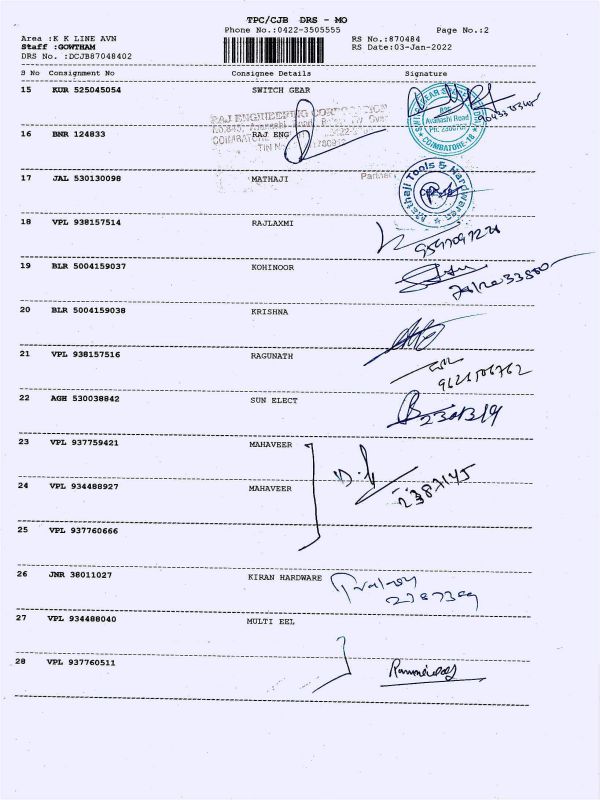 TPC/CJB DRS - MO
Phone No.:0422-3505555 Page No.:2
Area :K K LINE AVN RS No.:870484
Staff :GOWTHAM RS Date:03-Jan-2022
DRS No. :DCJB87048402
S No Consignment No Consignee Details Signature
15 KUR 525045054 SWITCH GEAR
RAJ ENGINEERING CORPORATION
Avanashi Road
COIMBATORE-18
16 BNR 124833 RAJ ENG
17 JAL 530130098 MATHAJI
Partner
Mathaji Tools & Hardwares
18 VPL 938157514 RAJLAXMI
19 BLR 5004159037 KOHINOOR
20 BLR 5004159038 KRISHNA
21 VPL 938157516 RAGUNATH
22 AGH 530038842 SUN ELECT
23 VPL 937759421 MAHAVEER
24 VPL 934488927 MAHAVEER
2387145
25 VPL 937760666
26 JNR 38011027 KIRAN HARDWARE
27 VPL 934488040 MULTI EEL
28 VPL 937760511